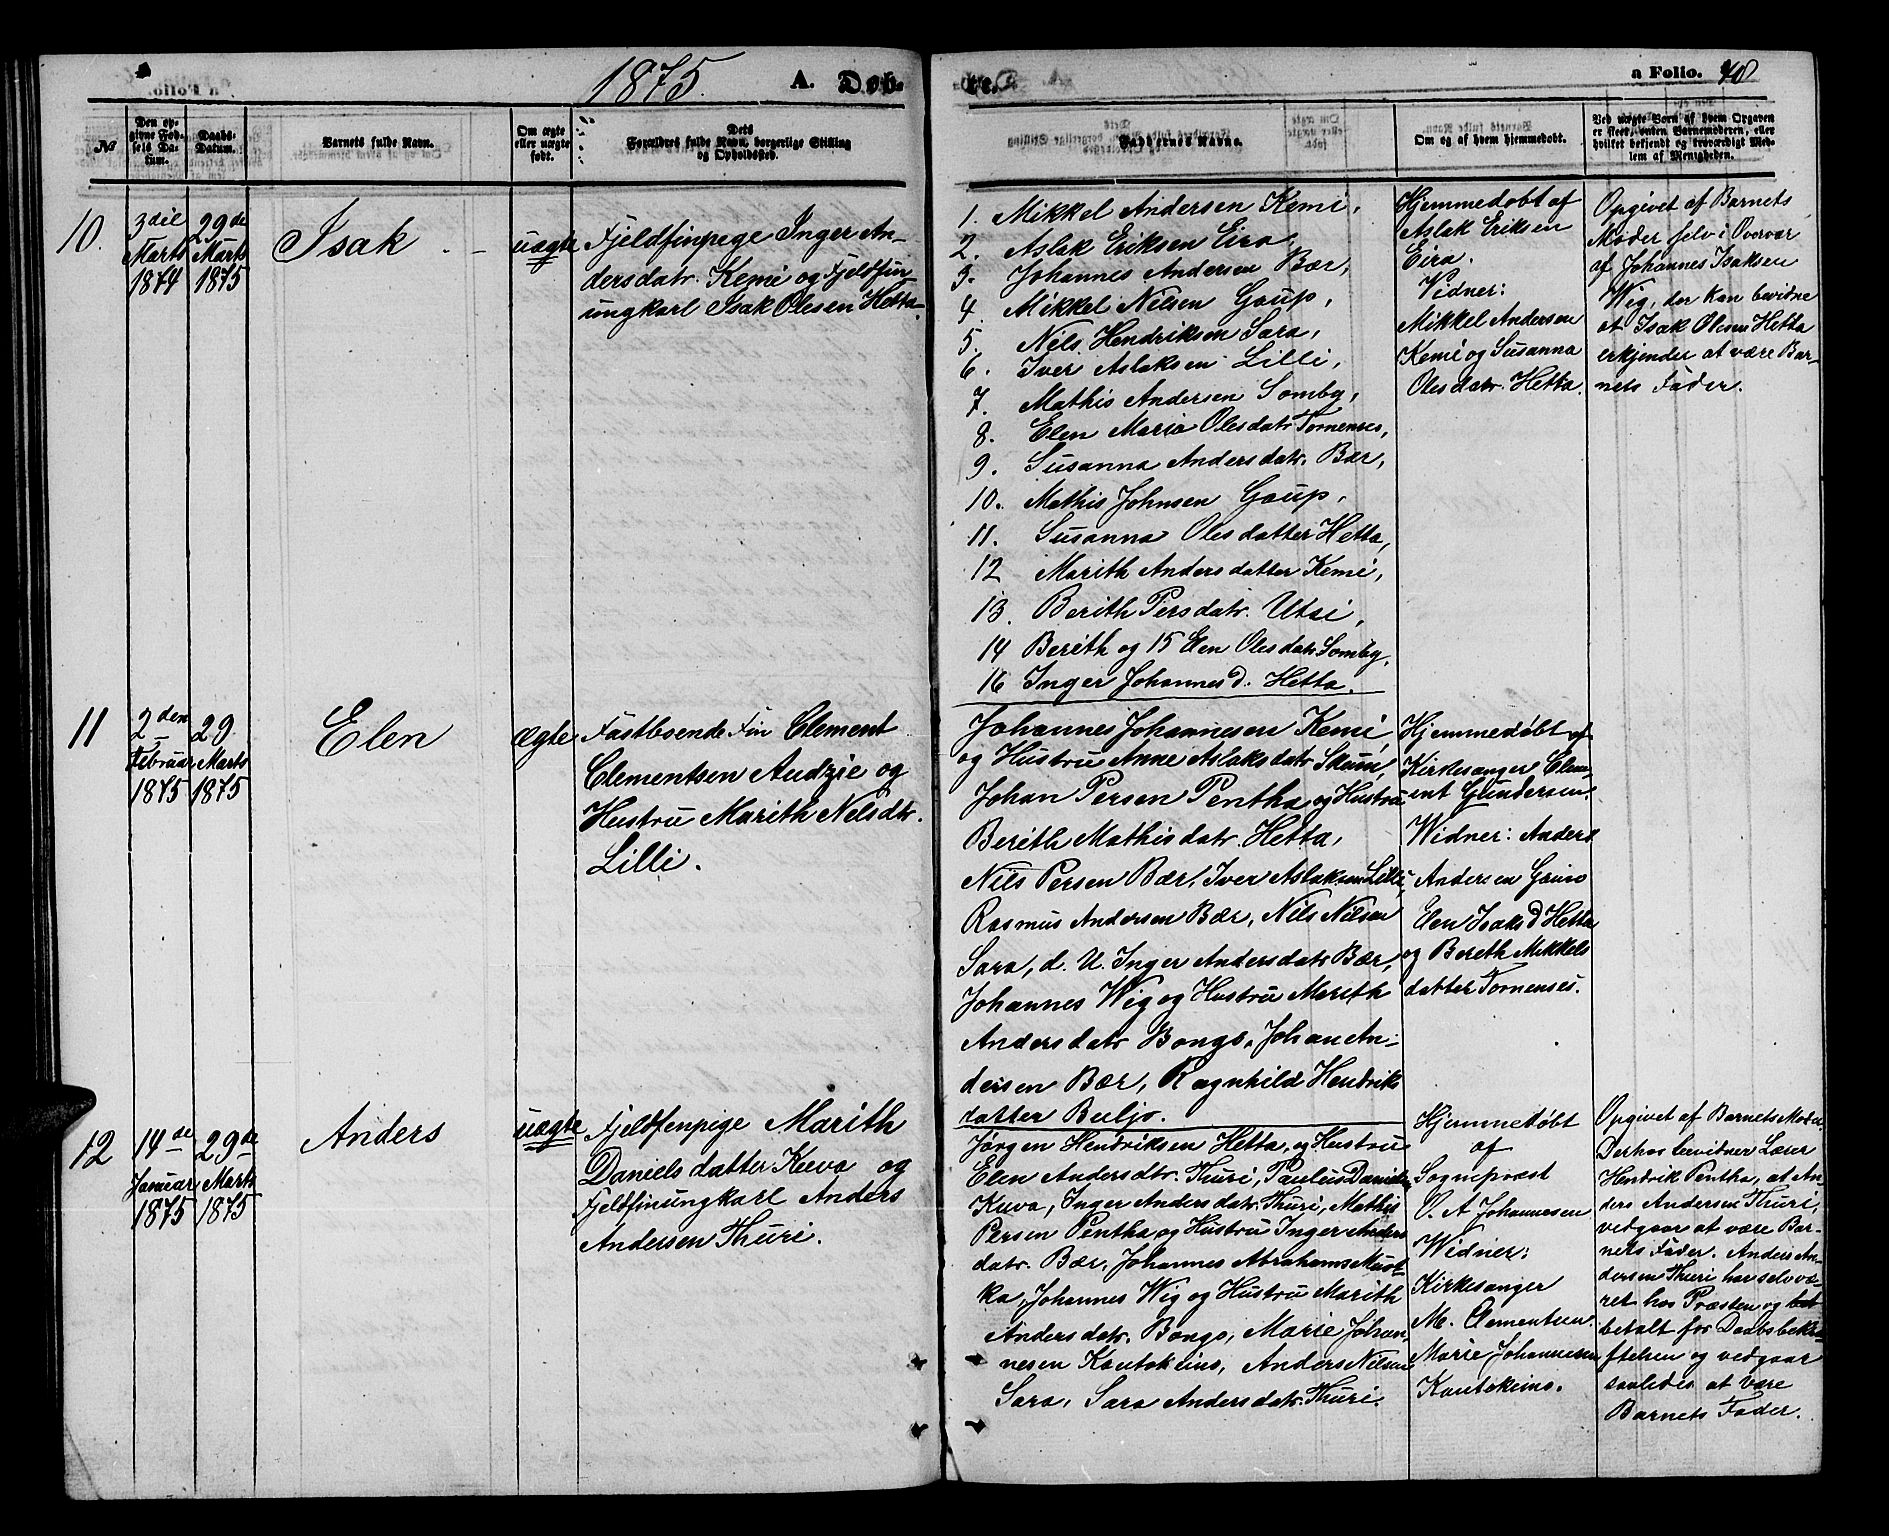 1875. A. Døb-
te.
a Folio. 40
№
Den op-
givne Fød-
sels Da-
tum.
Daabs-
Datum.
Barnets fulde Navn.
Om ægte
eller uægte
født.
Dets
Forældres fulde Navn, borgerlige Stilling
og Opholdssted.
Faddernes Navne.
Om og af hvem hjemmedøbt.
Ved uægte Børn af hvem Opgaven
er skeet, enten Barnemoderen, eller
hvilket bekjendt og troværdigt Med-
lem af Menigheden.
10.
3die
Marts
1874
29de
Marts
1875
Isak
uægte
Fjeldfinpige Inger An-
dersdatr. Kemi og Fjeldfin
ungkarl Isak Olesen Hetta.
1. Mikkel Andersen Kemi,
2. Aslak Eriksen Eira
3. Johannes Andersen Bær,
4. Mikkel Nilsen Gaup,
5. Nils Hendriksen Sara,
6. Iver Aslaksen Lilli,
7. Mathis Andersen Somby,
8. Elen Maria Olesdatr Tornenses,
9. Susanna Andersdatr. Bær,
10. Mathis Johnsen Gaup,
11. Susanna Olesdatter Hetta,
12 Marith Andersdatter Kemi,
13. Berith Persdatr. Utsi,
14 Berith og 15 Elen Olesdatr Somby,
16 Inger Johannesd. Hetta.
Hjemmedøbt af
Aslak Eriksen
Eira.
Vidner:
Mikkel Andersen
Kemi og Susanna
Olesdatr. Hetta.
Opgivet af Barnets
Moder selv i Overvær
af Johannes Isaksen
Wig, der kan bevidne
at Isak Olesen Hetta
erkjender at være Bar-
nets Fader.
11
2den
Februar
1875
29
Marts
1875
Elen
Ægte
Fastboende Fin Clement
Clementsen Audzie og
Hustru Marith Nelsdtr.
Lilli.
Johannes Johannesen Kemi
og Hustru Anne Aslaksdatr Skum,
Johan Persen Pentha og Hustru
Berith Mathisdatr. Hetta,
Nils Persen Bær, Iver Aslaksen Lilli,
Rasmus Andersen Bær, Nils Nilsen
Sara, d. U. Inger Andersdatr Bær,
Johannes Wig og Hustru Marith
Andersdatr Bongo, Johan An-
dersen Bær, Ragnhild Hendriks
datter Buljo.
Hjemmedøbt af
Kirkesanger Clem-
ent Gundersen.
Widner: Anders
Andersen Gaino
Elen Isaksd Hetta
og Bereth Mikkels
datter Tornenses.
12
14de
Januar
1875
29de
Marts
1875
Anders
uægte
Fjeldfenpige Marith
Danielsdatter Kuva og
Fjeldfinungkarl Anders
Andersen Thuri.
Jørgen Hendriksen Hetta, og Hustru
Elen Andersdtr. Thuri, Paulus Daniels,
Kuva, Inger Andersdatr. Thuri, Mathis
Persen Pentha og Hustru Inger Anders
datr. Bær, Johannes Abrahams Must-
ka, Johannes Wig og Hustru Marith
Andersdatr. Bongo, Marie Johan-
nesen Kautokeino, Anders Nilsen
Sara, Sara Andersdatr. Thuri.
Hjemmedøbt
af
Sognepræst
O. A Johannesen
Widner:
Kirkesanger
M. Clementsen.
Marie Johannesen
Kautokeino.
Opgivet af Barnets Moder,
Derhos bevidner Lærer
Hendrik Pentha, at An-
ders Andersen Thuri,
vedgaar at være Bar-
nets Fader. Anders An-
dersen Thuri har selv væ-
ret hos Præsten og
betalt for Daabsbekræ-
ftelsen og vedgaar
saaledes at være
Barnets Fader.